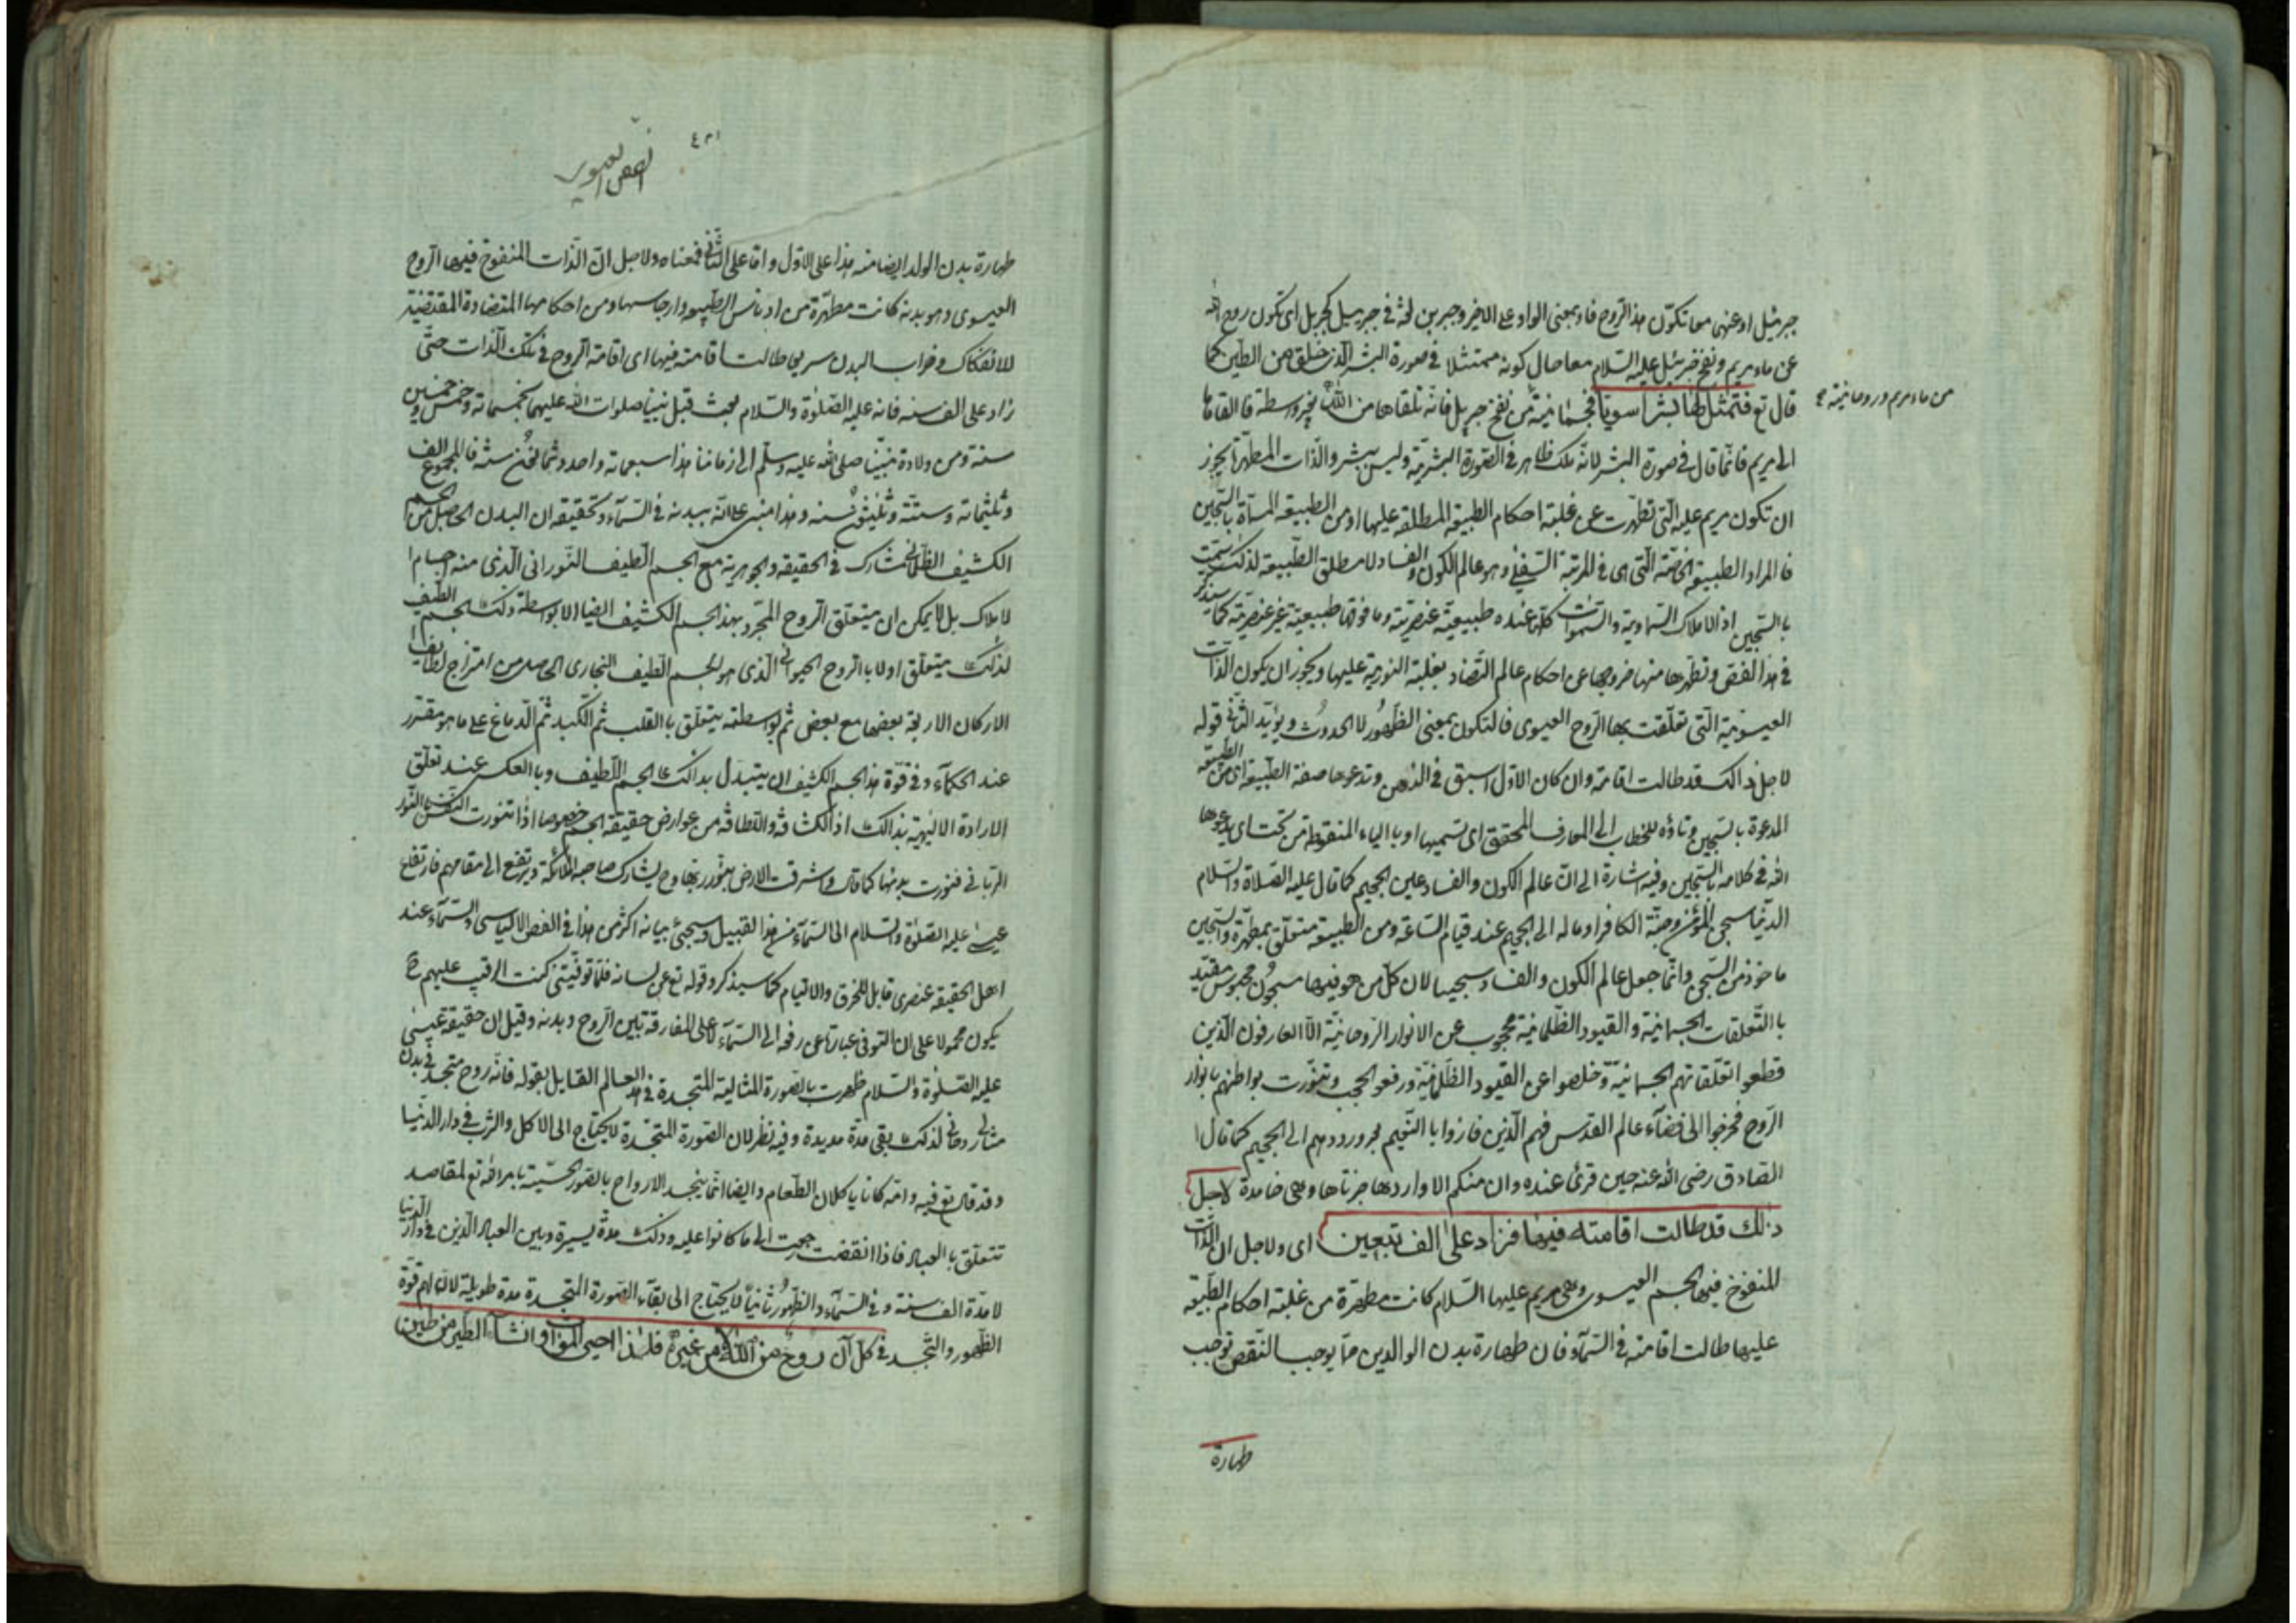 جبرئيل او عنهما معا تكوّن هذا الروح فاو بمعنى الواو على الاخير وجبرين لغة في جبرييل كجبريل اى تكون روح الله
عن ماء مريم ونفخ جبرئيل عليه السلام معا حال كونه متمثلا في صورة البشر الذى خلق من الطين كما
قال تع فتمثل لها بشرا سويا فجسمانيته من نفخ جبريل فانه تلقاها من الله بغير واسطة فالقاها
من ماء مريم وروحانيته صح
الى مريم فانما قال في صورة البشر لانه ملك ظاهر في الصورة البشرية وليس ببشر والذات المطهرة يجوز
ان تكون مريم عليه التى تطهرت عن غلبة احكام الطبيعة المطلقة عليها او من الطبيعة المسماة بالسجين
فالمراد الطبيعة الخاصة التى هى في المرتبة السفلى وهو عالم الكون والفساد لا مطلق الطبيعة لذلك سميت
بالسجين اذ الاملاك السماوية والسموات كلها عنده طبيعية عنصرية وما فوقها طبيعية غير عنصرية كما سيذكر
في هذا الفص وتطهرها منها خروجها عن احكام عالم التضاد بغلبة النورية عليها ويجوز ان يكون الذات
العيسوية التى تعلقت بها الروح العيسوى فالتكون بمعنى الظهور لا الحدوث ويؤيد الثانى قوله
لاجل ذالك قد طالت اقامته وان كان الاول اسبق في الذهن وتدعوها صفة الطبيعة اى من الطبيعة
المدعوة بالسجين وتاؤه للخطاب الى العارف المحقق اى تسميها او بالياء المنقوطة من تحت اى يدعوها
الله في كلامه بالسجين وفيه اشارة الى ان عالم الكون والفساد عين الجحيم كما قال عليه الصلاة والسلام
الدنيا سجن المؤمن وجنة الكافر او ماله الى الجحيم عند قيام الساعة ومن الطبيعة متعلق بمطهرة والسجين
ماخوذ من السجن وانما جعل عالم الكون والفساد سجينا لان كل من هو فيها مسجون محبوس مقيد
بالتعلقات الجسمانية والقيود الظلمانية محجوب عن الانوار الروحانية الا العارفون الذين
قطعوا تعلقاتهم الجسمانية وخلصوا عن القيود الظلمانية ورفعوا الحجب وتنورت بواطنهم بانوار
الروح فخرجوا الى فضاء عالم القدس فهم الذين فازوا بالنعيم بعد ورودهم الى الجحيم كما قال
الصادق رضى الله عنه حين قرئ عنده وان منكم الا واردها جزناها وهى خامدة لاجل
ذلك قد طالت اقامته فيها فزاد على الف بتعيين اى ولاجل ان الذات
المنفوخ فيها الجسم العيسوى وهى مريم عليها السلام كانت مطهرة من غلبة احكام الطبيعة
عليها طالت اقامته في السماء فان طهارة بدن الوالدين مما يوجب النقص توجب
طهارة
٤٣١
الفص العيسوية
طهارة بدن الولد ايضا منه هذا على الاول واما على الثانى فمعناه ولاجل ان الذات المنفوخ فيها الروح
العيسوى وهو بدنه كانت مطهرة من ادناس الطبيعة وارجاسها ومن احكامها المتضادة المقتضية
للانفكاك وخراب البدن سريعا طالت اقامته فيها اى اقامة الروح في تلك الذات حتى
زاد على الف سنه فانه عليه الصلوة والسلام بعث قبل نبينا صلوات الله عليهما بخمسمائة وخمس وخمسين
سنة ومن ولادة نبينا صلى الله عليه وسلم الى زماننا هذا سبعمائة واحد وثمانون سنة فالمجموع الف
وثلثمائة وستة وثلثون سنه وهذا مبنى على انه ببدنه في السماء وتحقيقه ان البدن الحاصل من الجسم
الكثيف الظلمانى مشارك في الحقيقة والجوهرية مع الجسم اللطيف النورانى الذى منه اجسام ا
لاملاك بل لا يمكن ان يتعلق الروح المجرد بهذا الجسم الكثيف ايضا الا بواسطة ذلك الجسم اللطيف
لذلك يتعلق اولا بالروح الحيوانى الذى هو الجسم اللطيف البخارى الحاصل من امتزاج لطايف ا
الاركان الاربعة بعضها مع بعض ثم بواسطته يتعلق بالقلب ثم الكبد ثم الدماغ على ما هو مقرر
عند الحكماء وفي قوة هذا الجسم الكثيف ان يتبدل بذالك الجسم اللطيف وبالعكس عند تعلق
الارادة الالهية بذالك اذ الكثافة واللطافة من عوارض حقيقة الجسم خصوصا اذا تنورت النفس بالنور
الربانى فنورت بدنها كما قال واشرقت الارض بنور ربها وح يشارك صاحبه الملائكة ويرتفع الى مقامهم فارتفاع
عيسى عليه الصلوة والسلام الى السماء من هذا القبيل وسيجئ بيانه اكثر من هذا في الفص الالياسى والسماء عند
اهل الحقيقة عنصرى قابل للخرق والالتيام كما سيذكر وقوله تع عن لسانه فلما توفيتنى كنت الرقيب عليهم ح
يكون محمولا على ان التوفى عبارة عن رفعه الى السماء لا على المفارقة بين الروح وبدنه وقيل ان حقيقة عيسى
عليه الصلوة والسلام ظهرت بالصورة المثالية المتجسدة في هذا العالم القايل بقوله فانه روح متجسد في بدن
مثالى روحانى لذلك بقى مدة مديدة وفيه نظر لان الصورة المتجسدة لا يحتاج الى الاكل والشرب في دار الدنيا
وقد قال تع فيه وامه كانا ياكلان الطعام وايضا انما يتجسد الارواح بالصور الحسية بامر الله تع لمقاصد
تتعلق بالعباد فاذا انقضت رجعت الى ما كانوا عليه وذلك مدة يسيرة وبين العباد الذين في دار الدنيا
لا مدة الف سنة وفي السماء والظهور ثانيا لا يحتاج الى بقاء الصورة المتجسدة مدة طويلة لان لهم قوة
الظهور والتجسد في كل آن روح من الله لا من غيره فلذا احيى الموات وانشأ الطير من طين